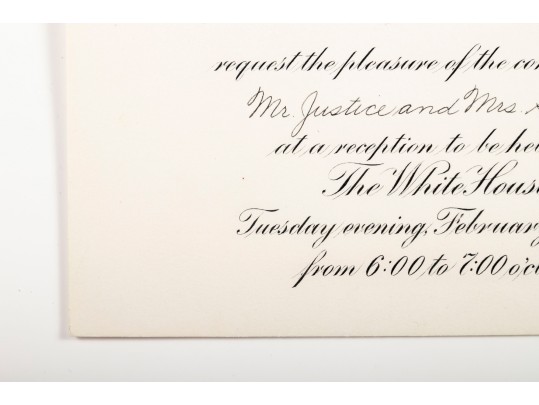 request the pleasure of the con
Mr. Justice and Mrs.
at a reception to be he
The White House
Tuesday evening, February
from 6:00 to 7:00 o'cl